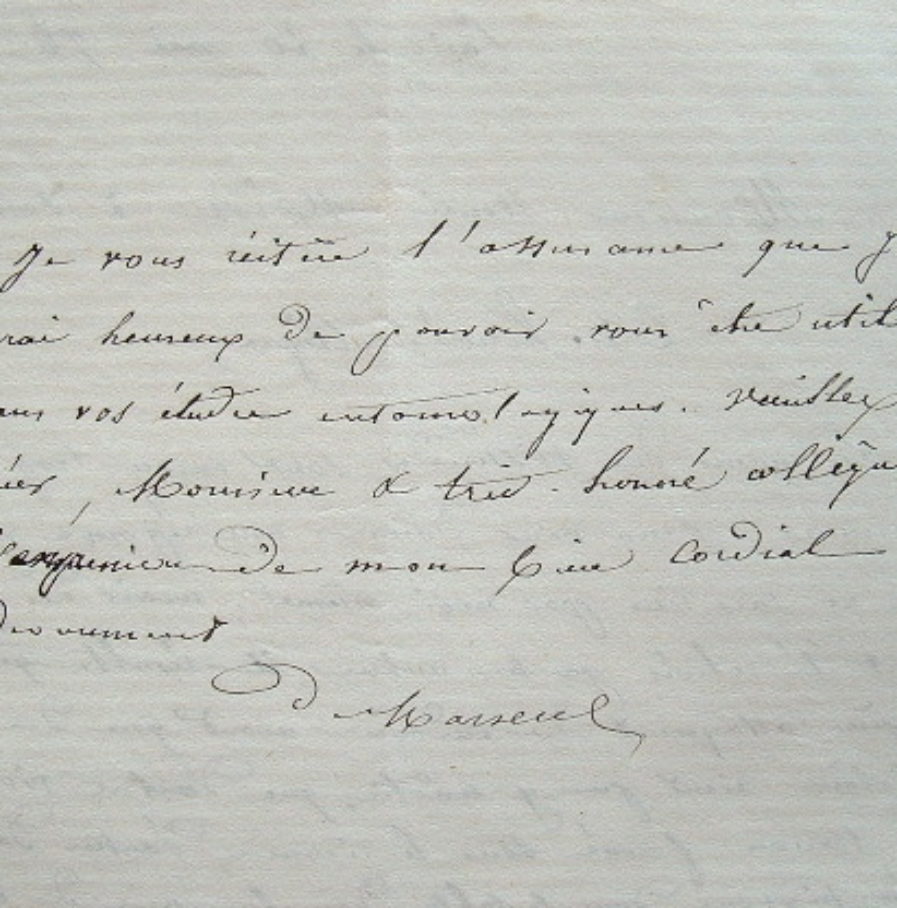 Je vous réitère l'assurance que J
rai heureux de pouvoir vous être util
vos études entomologiques. Veuillez
Monsieur & très honoré collègu
l'expression de mon bien cordial
devouement
DeMarseul